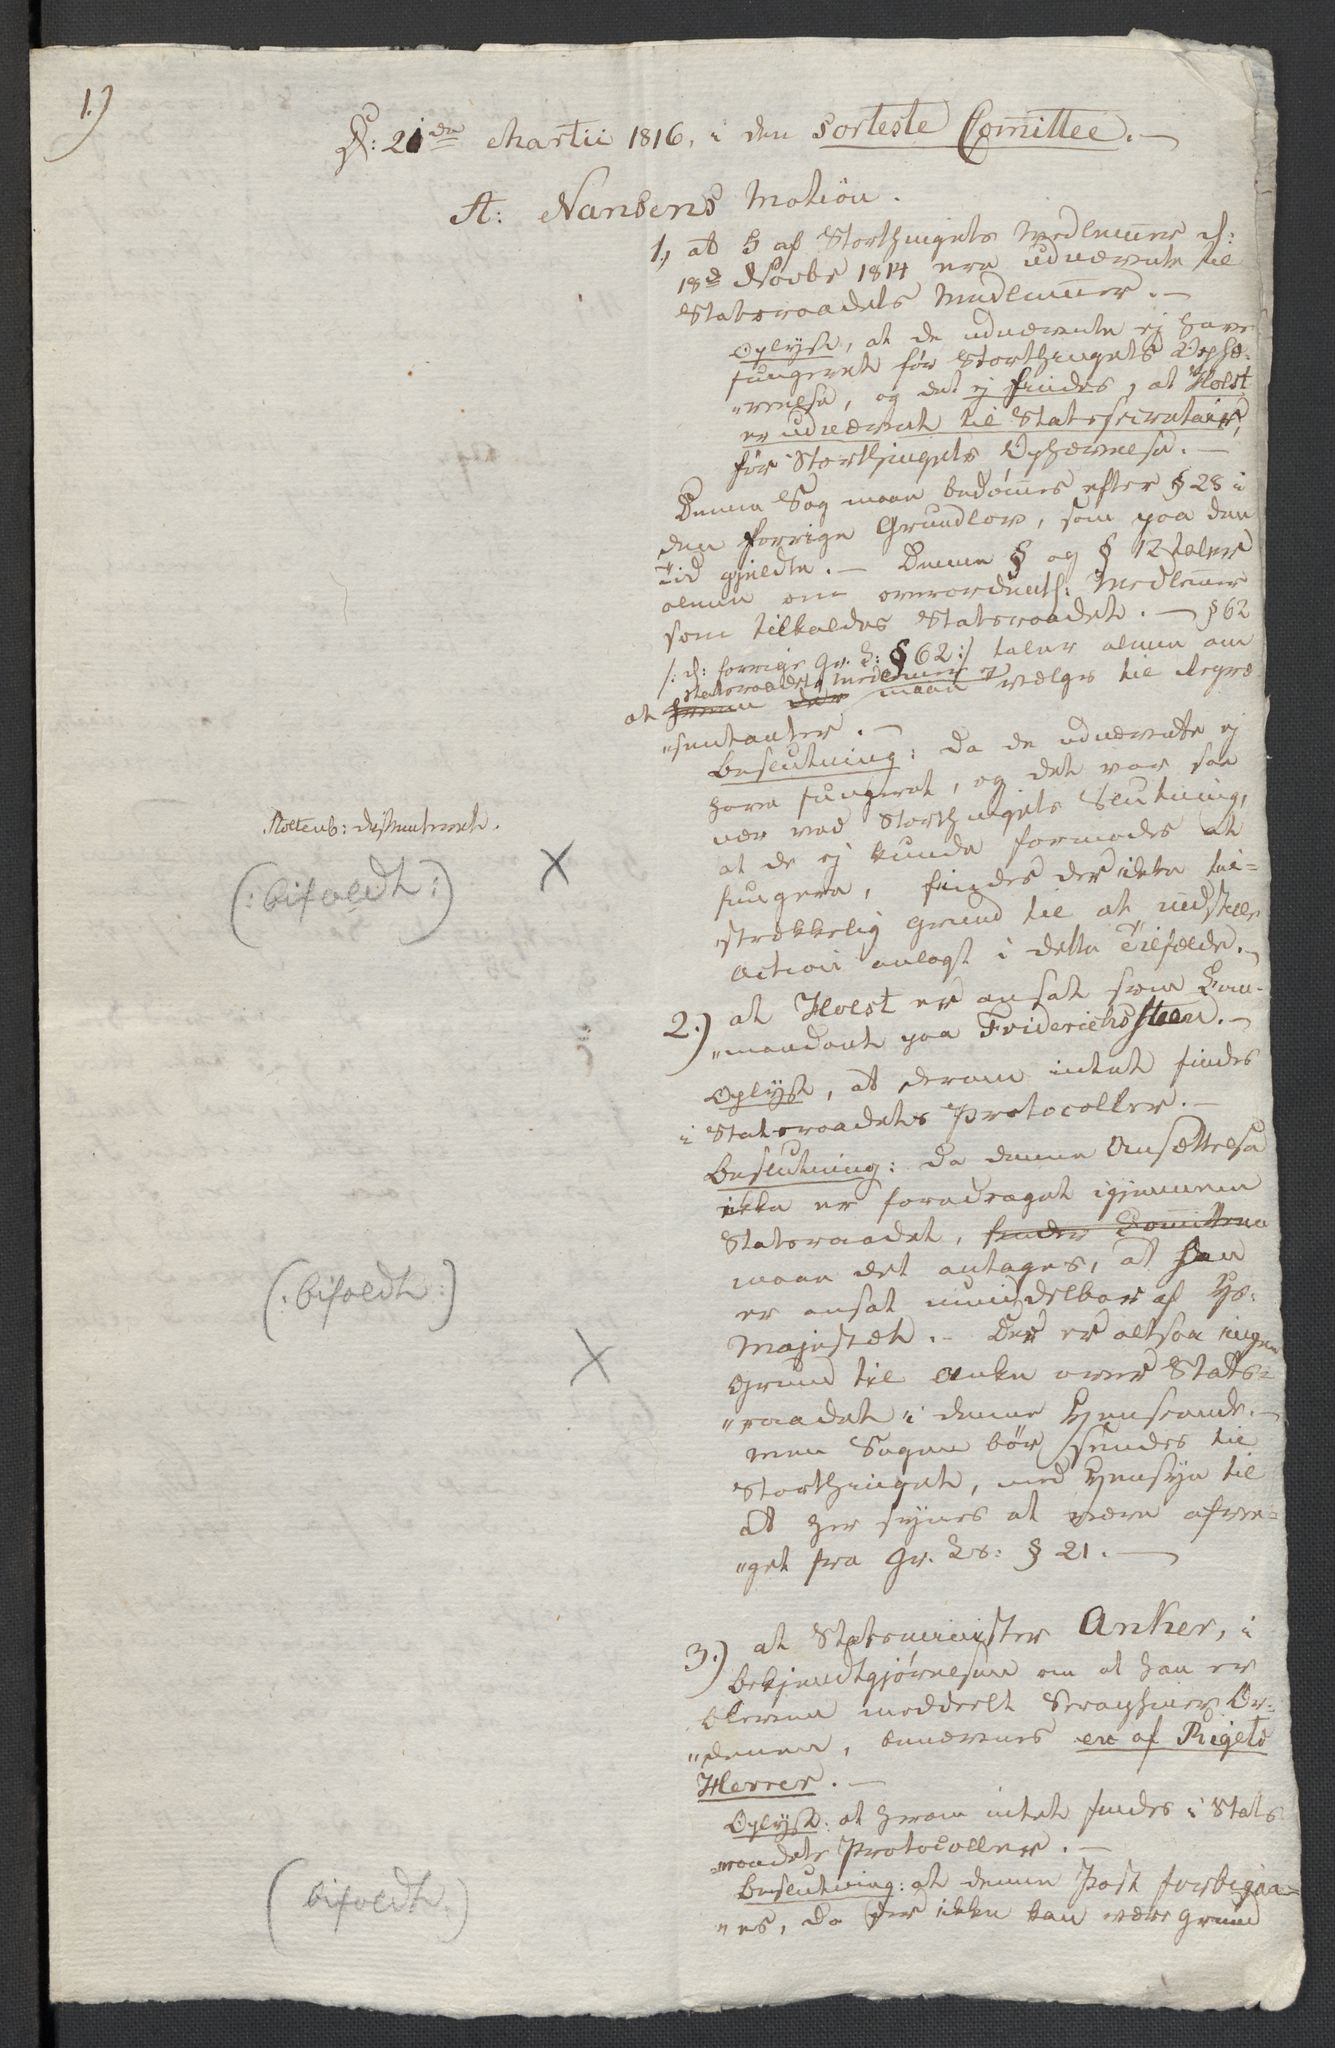 1.)
D: 21den Martii 1816, i den sorteste Comittee.
A: Nansens Motion.
1, at 5 af Storthingets Medlemer d:
18d Novbr 1814 ere udnævnte til
Statsraadets Medlemmer.
Oplyst, at de udnævnte ej have
fungeret før Storthingets Ophæ-
"velse, og det ej findes, at Holst
er udnævnt til Statssecretair,
før Storthingets Ophævelse.
Denne Sag maae bedømes efter § 28 i
den forrige Grundlov, som paa den
Tid gjeldte. Denne § og § 12 taler
alene om overordentl: Medlemer
som tilkaldes Statsraadet. § 62
/: d: forrige Gr. L: § 62 :/ taler alene om
Statsraadets Medlemer ej
at maae vælges til Repræ
"sentanter.
Beslutning: Da de udnævnte ej
have fungeret, og det var saa
nær ved Storthingets Slutning,
at de ej kunde formodes at
fungere, findes der ikke til-
"strækkelig Grund til at indstille
Action anlagt i dette Tilfælde.
Stoltenb: dissenterede.
(: bifaldt :)
2.) at Holst er ansat som Com-
"mandant paa Friderichssteen.
Oplyst, at derom intet findes
i Statsraadets Protocoller.
Beslutning: Da denne Ansættelse
ikke er foredraget igjennem
Statsraadet, finder Comitteen
maae det antages, at han
er ansat umiddelbar af Hs:
Majestæt. Der er altsaa ingen
Grund til Anke over Stats-
"raadet i denne Henseende.
men Sagen bør sendes til
Storthinget, med Hensyn til
at her synes at være afvee-
"get fra Gr. Ls: § 21.
(: bifaldt :)
3.) at Statsminister Anker, i
Bekjendtgjørelsen om at han er
bleven meddeelt Seraphimer Or-
"denen, benævnes en af Rigets
Herrer.
Oplyst: at herom intet findes i Stats
"raadets Protocoller.
Beslutning: at denne Post forbigaa-
"es, da der ikke kan være Grund
(bifaldt.)